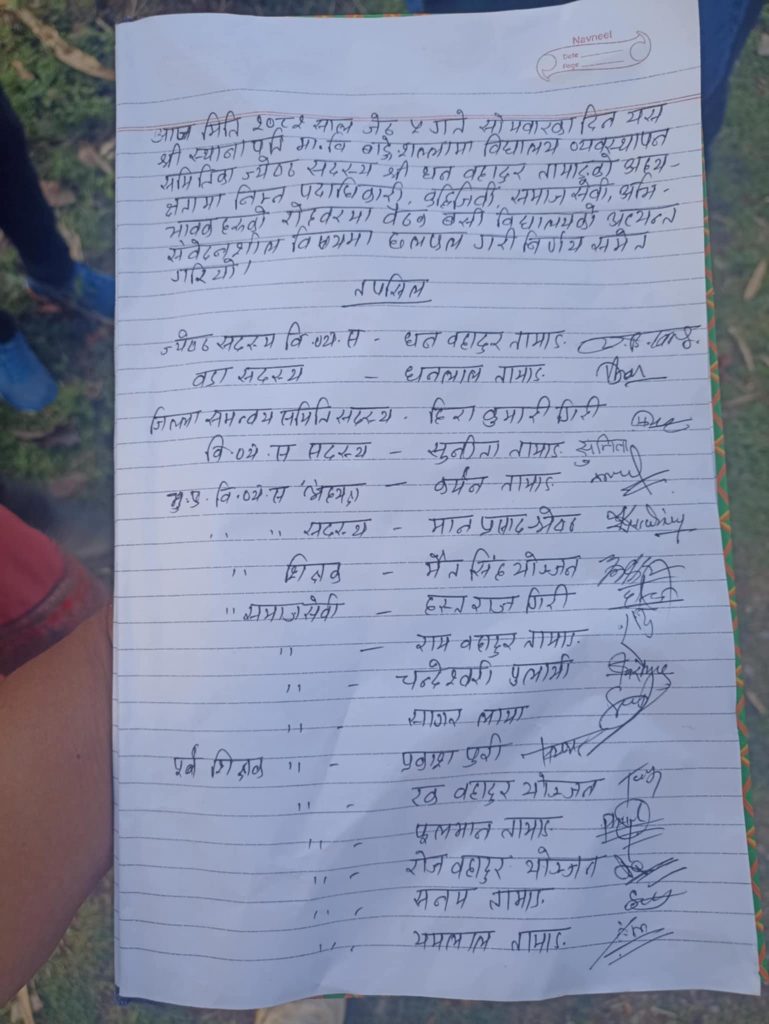 Navneet
Date
Page
आज मिति २०८२ साल जेठ ५ गते सोमवारका दिन यस
श्री स्थानापुति मा.वि विद्यालय व्यवस्थापन
समितिका ज्येष्ठ सदस्य श्री धन बहादुर तामाङको अध्य-
क्षतामा निम्न पदाधिकारी, बुद्धिजिवी, समाज सेवी, अभि-
भावकहरुको रोहवरमा वैठक बसी विद्यालयको अत्यन्त
संवेदनशील विषयमा छलफल गरी निर्णय समेत
गरियो।
तपसिल
ज्येष्ठ सदस्य वि.व्य.स - धन वहादुर तामाङ
वडा सदस्य - धनलाल तामाङ
जिल्ला समन्वय समिति सदस्य - हिरा कुमारी गिरी
वि.व्य.स सदस्य - सुनीता तामाङ सुनिता
पु.पु. वि.व्य.स - वर्मन तामाङ
" " सदस्य - मान प्रसाद श्रेष्ठ
" शिक्षक - मैन सिंह योञ्जन
" समाजसेवी - हस्त राज गिरी
" - राम वहादुर तामाङ
" - चन्देश्वरी पुलामी
" - सागर लामा
पूर्व शिक्षक " - प्रकाश पुरी
" - वहादुर योञ्जन
" - फूलमान तामाङ
" - रोज वहादुर योञ्जन
" - सनम तामाङ
" - यमलाल तामाङ